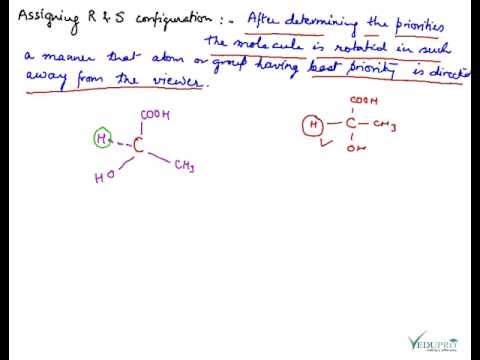 Assigning R & S configuration :- After determining the priorities
the molecule is rotated in such
a manner that atom or group having least priority is directed
away from the viewer.
COOH
H
C
HO
CH3
COOH
H - C - CH3
OH
VEDUPRO